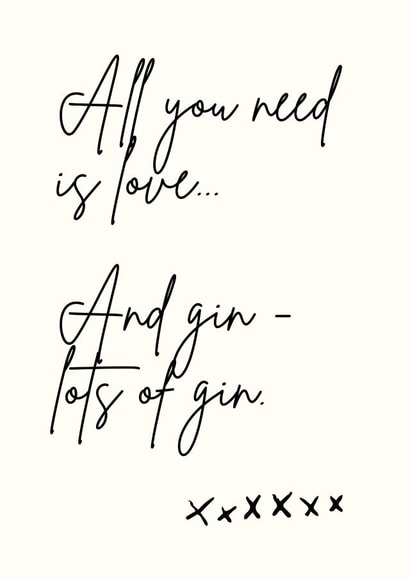 All you need
is love...
And gin -
lots of gin.
xxxxxx